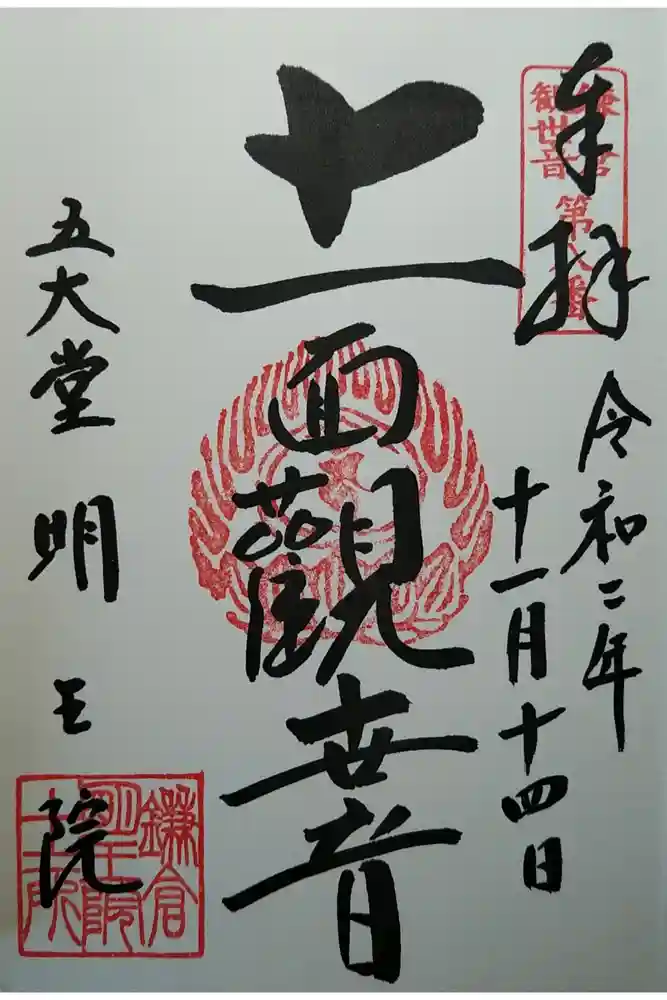 奉拝
鎌倉
観世音
第八番
令和二年
十一月十四日
十一面觀世音
五大堂
明王院
鎌倉
明王院